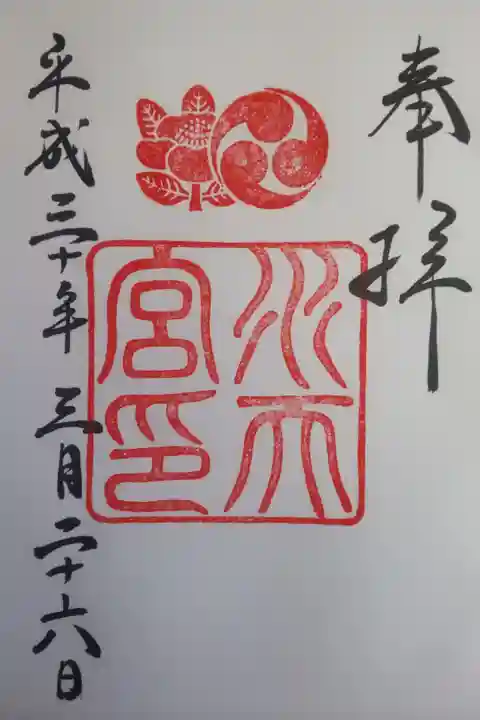 奉拝
水天
宮印
平成三十年三月二十六日